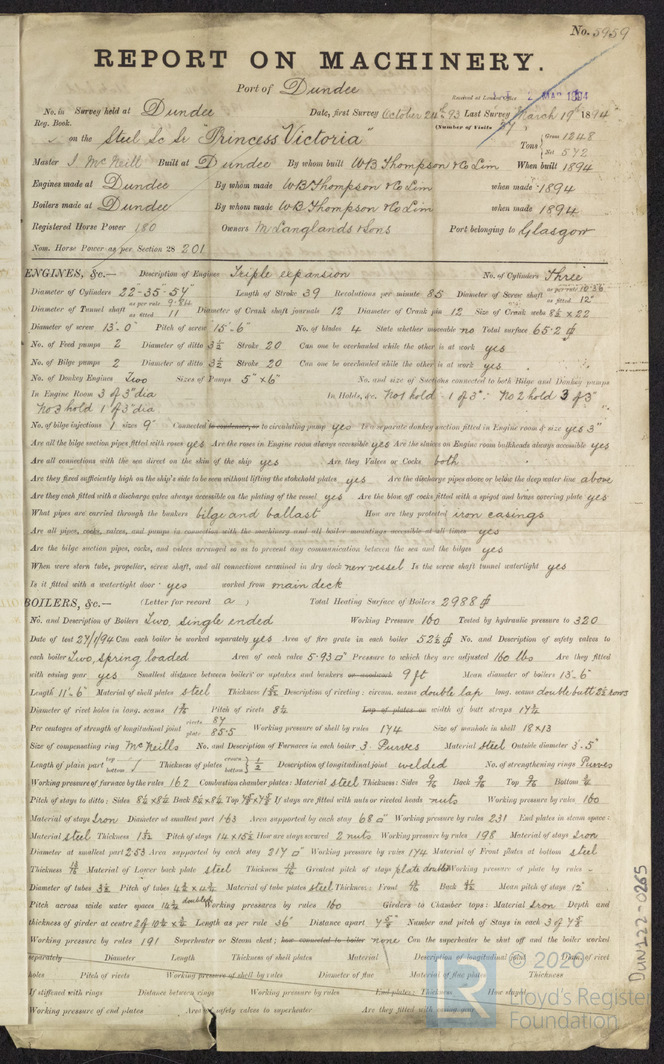 No. 5959
REPORT ON MACHINERY.
Port of Dundee
Received at London Office 2 MAR 1894
No. in Survey held at Dundee Date, first Survey October 24th 93 Last Survey March 19 1894
Reg. Book. (Number of Visits
on the Steel Sc Sr "Princess Victoria" Tons Gross 1248 Net 572
Master J McNeill Built at Dundee By whom built W.B. Thompson & Co Lim When built 1894
Engines made at Dundee By whom made W.B. Thompson & Co Lim when made 1894
Boilers made at Dundee By whom made W.B. Thompson & Co Lim when made 1894
Registered Horse Power 180 Owners M Langlands & Sons Port belonging to Glasgow
Nom. Horse Power as per Section 28 201
ENGINES, &c.— Description of Engines Triple expansion No. of Cylinders Three
Diameter of Cylinders 22-35-57" Length of Stroke 39 Revolutions per minute 85 Diameter of Screw shaft as per rule 10.56 as fitted 12"
Diameter of Tunnel shaft as per rule 9.84 as fitted 11 Diameter of Crank shaft journals 12 Diameter of Crank pin 12 Size of Crank webs 8½ x 22
Diameter of screw 13'-0" Pitch of screw 15'-6" No. of blades 4 State whether moveable no Total surface 65.2
No. of Feed pumps 2 Diameter of ditto 3½ Stroke 20 Can one be overhauled while the other is at work yes
No. of Bilge pumps 2 Diameter of ditto 3½ Stroke 20 Can one be overhauled while the other is at work yes.
No. of Donkey Engines Two Sizes of Pumps 5" x 6" No. and size of Suctions connected to both Bilge and Donkey pumps
In Engine Room 3 of 3" dia In Holds, &c. No1 hold - 1 of 3": No 2 hold 3 of 3"
No 3 hold 1 of 3" dia
No. of bilge injections 1 sizes 9" Connected to condenser, or to circulating pump yes Is a separate donkey suction fitted in Engine room & size yes 3"
Are all the bilge suction pipes fitted with roses yes Are the roses in Engine room always accessible yes Are the sluices on Engine room bulkheads always accessible yes
Are all connections with the sea direct on the skin of the ship yes Are they Valves or Cocks both
Are they fixed sufficiently high on the ship's side to be seen without lifting the stokehold plates yes Are the discharge pipes above or below the deep water line above
Are they each fitted with a discharge valve always accessible on the plating of the vessel yes Are the blow off cocks fitted with a spigot and brass covering plate yes
What pipes are carried through the bunkers bilge and ballast How are they protected iron casings
Are all pipes, cocks, valves, and pumps in connection with the machinery and all boiler mountings accessible at all times yes
Are the bilge suction pipes, cocks, and valves arranged so as to prevent any communication between the sea and the bilges yes
When were stern tube, propeller, screw shaft, and all connections examined in dry dock new vessel Is the screw shaft tunnel watertight yes
Is it fitted with a watertight door yes worked from main deck
BOILERS, &c.— (Letter for record a ) Total Heating Surface of Boilers 2988
No. and Description of Boilers Two, single ended Working Pressure 160 Tested by hydraulic pressure to 320
Date of test 27/1/94 Can each boiler be worked separately yes Area of fire grate in each boiler 52½ No. and Description of safety valves to
each boiler Two, spring loaded Area of each valve 5.93 Pressure to which they are adjusted 160 lbs Are they fitted
with easing gear yes Smallest distance between boilers or uptakes and bunkers or woodwork 9 ft Mean diameter of boilers 13'-6"
Length 11'-6" Material of shell plates steel Thickness Description of riveting: circum. seams double lap long. seams double butt 2½ rows
Diameter of rivet holes in long. seams Pitch of rivets 8½ Lap of plates or width of butt straps 17½
Per centages of strength of longitudinal joint rivets 87 plate 85.5 Working pressure of shell by rules 174 Size of manhole in shell 18x13
Size of compensating ring McNeills No. and Description of Furnaces in each boiler 3 Purves Material steel Outside diameter 3'.5"
Length of plain part top bottom Thickness of plates crown bottom ½ Description of longitudinal joint welded No. of strengthening rings Purves
Working pressure of furnace by the rules 162 Combustion chamber plates: Material steel Thickness: Sides 9/16 Back 9/16 Top 9/16 Bottom
Pitch of stays to ditto: Sides 8½x8½ Back 8½x8½ Top If stays are fitted with nuts or riveted heads nuts Working pressure by rules 160
Material of stays Iron Diameter at smallest part 1.63 Area supported by each stay 68 Working pressure by rules 231 End plates in steam space:
Material steel Thickness Pitch of stays 14 x 15½ How are stays secured 2 nuts Working pressure by rules 198 Material of stays Iron
Diameter at smallest part 2.53 Area supported by each stay 217 Working pressure by rules 174 Material of Front plates at bottom steel
Thickness Material of Lower back plate steel Thickness Greatest pitch of stays plate doubled Working pressure of plate by rules -
Diameter of tubes 3½ Pitch of tubes 4½ x 4½ Material of tube plates steel Thickness: Front Back Mean pitch of stays 12"
Pitch across wide water spaces 14½ doubled Working pressures by rules 160 Girders to Chamber tops: Material Iron Depth and
thickness of girder at centre Length as per rule 36" Distance apart Number and pitch of Stays in each
Working pressure by rules 191 Superheater or Steam chest; how connected to boiler none Can the superheater be shut off and the boiler worked
separately Diameter Length Thickness of shell plates Material Description of longitudinal joint Diam. of rivet
holes Pitch of rivets Working pressure of shell by rules Diameter of flue Material of flue plates Thickness
If stiffened with rings Distance between rings Working pressure by rules End plates: Thickness How stayed
Working pressure of end plates Area of safety valves to superheater Are they fitted with easing gear
DUN122-0265
© 2020
Lloyd's Register
Foundation